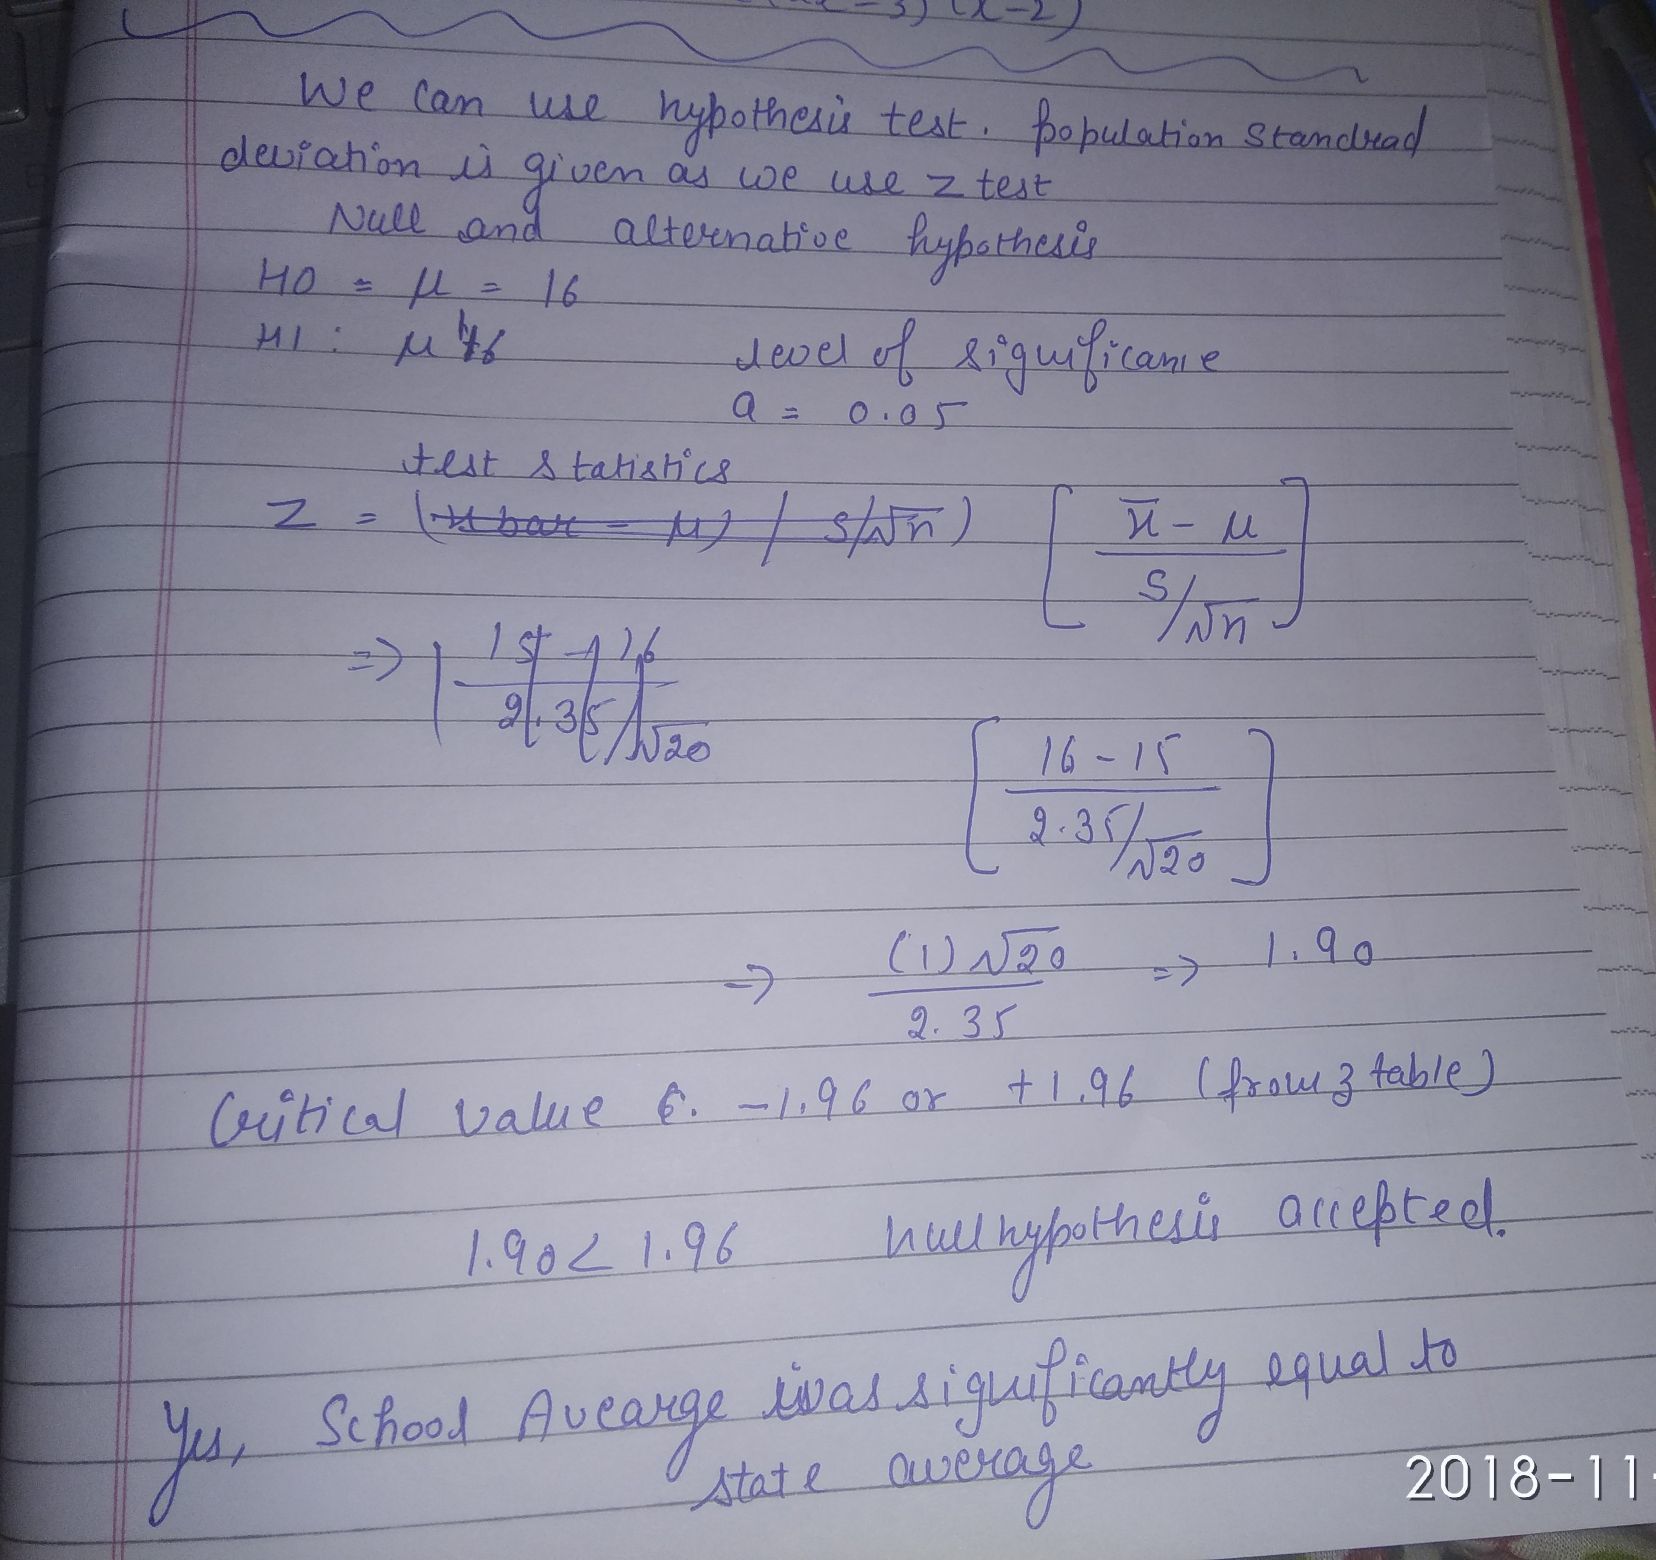 (x-2)
We can use hypothesis test. population standrad
deviation is given as we use z test
Null and alternative hypothesis
HO = μ = 16
H1 : μ
level of significance
a = 0.05
test statistics
Z = (x bar - μ) / S/√n) [ x̄ - μ / S/√n ]
=> 15 - 16 / 2.35/√20
[ 16 - 15 / 2.35/√20 ]
=> (1)√20 / 2.35 => 1.90
Critical value -1.96 or +1.96 (from z table)
1.90 < 1.96 null hypothesis accepted.
Yes, School Avearge was significantly equal to
state average
2018-11-